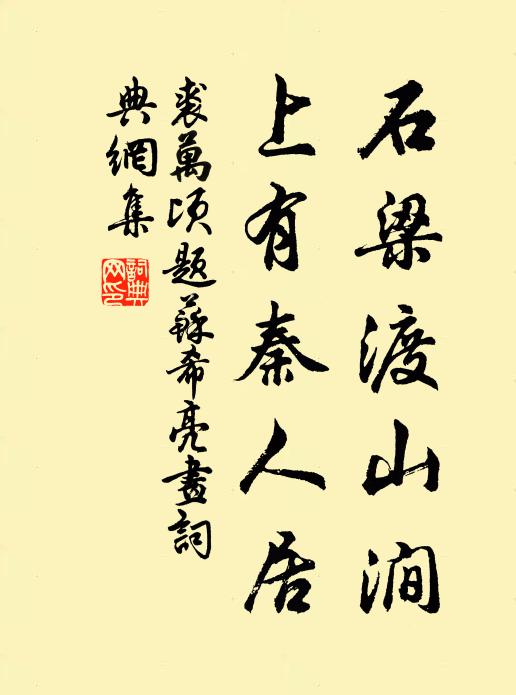 石梁渡山澗
上有秦人居
裘萬頃題蘇希亮畫詞
典網集
詞典網印